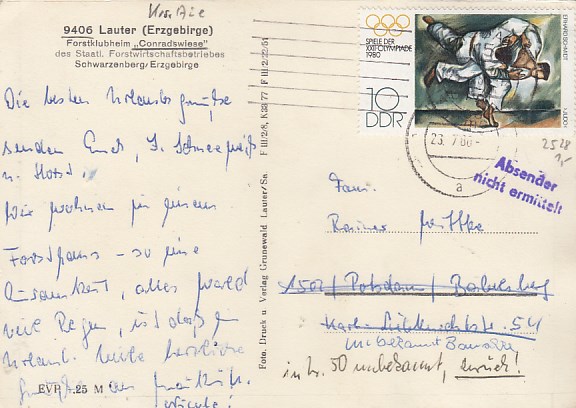 9406 Lauter (Erzgebirge)
Forstklubheim „Conradswiese"
des Staatl. Forstwirtschaftsbetriebes
Schwarzenberg/Erzgebirge
Die besten Urlaubsgrüße
senden Euch,
u. Horst.
Wir wohnen in einem
Forsthaus - so eine
Einsamkeit, alles Wald
viel Regen, ist das ein
Urlaub. Viele herzliche
EVP .25 M
Foto. Druck u. Verlag Grunewald Lauter/Sa. F III/2/8, K 33 77 F III/2/22/51
SPIELE DER
XXII. OLYMPIADE
1980
10
DDR
ERHARD SCHMIDT
"JUDO"
23. 7. 80
a
2528
1,-
Absender
nicht ermittelt
Fam.
Rainer
1502/Potsdam/Babelsberg
Karl-Liebknechtstr. 54
unbekannt
in Nr. 50 unbekannt, zurück!